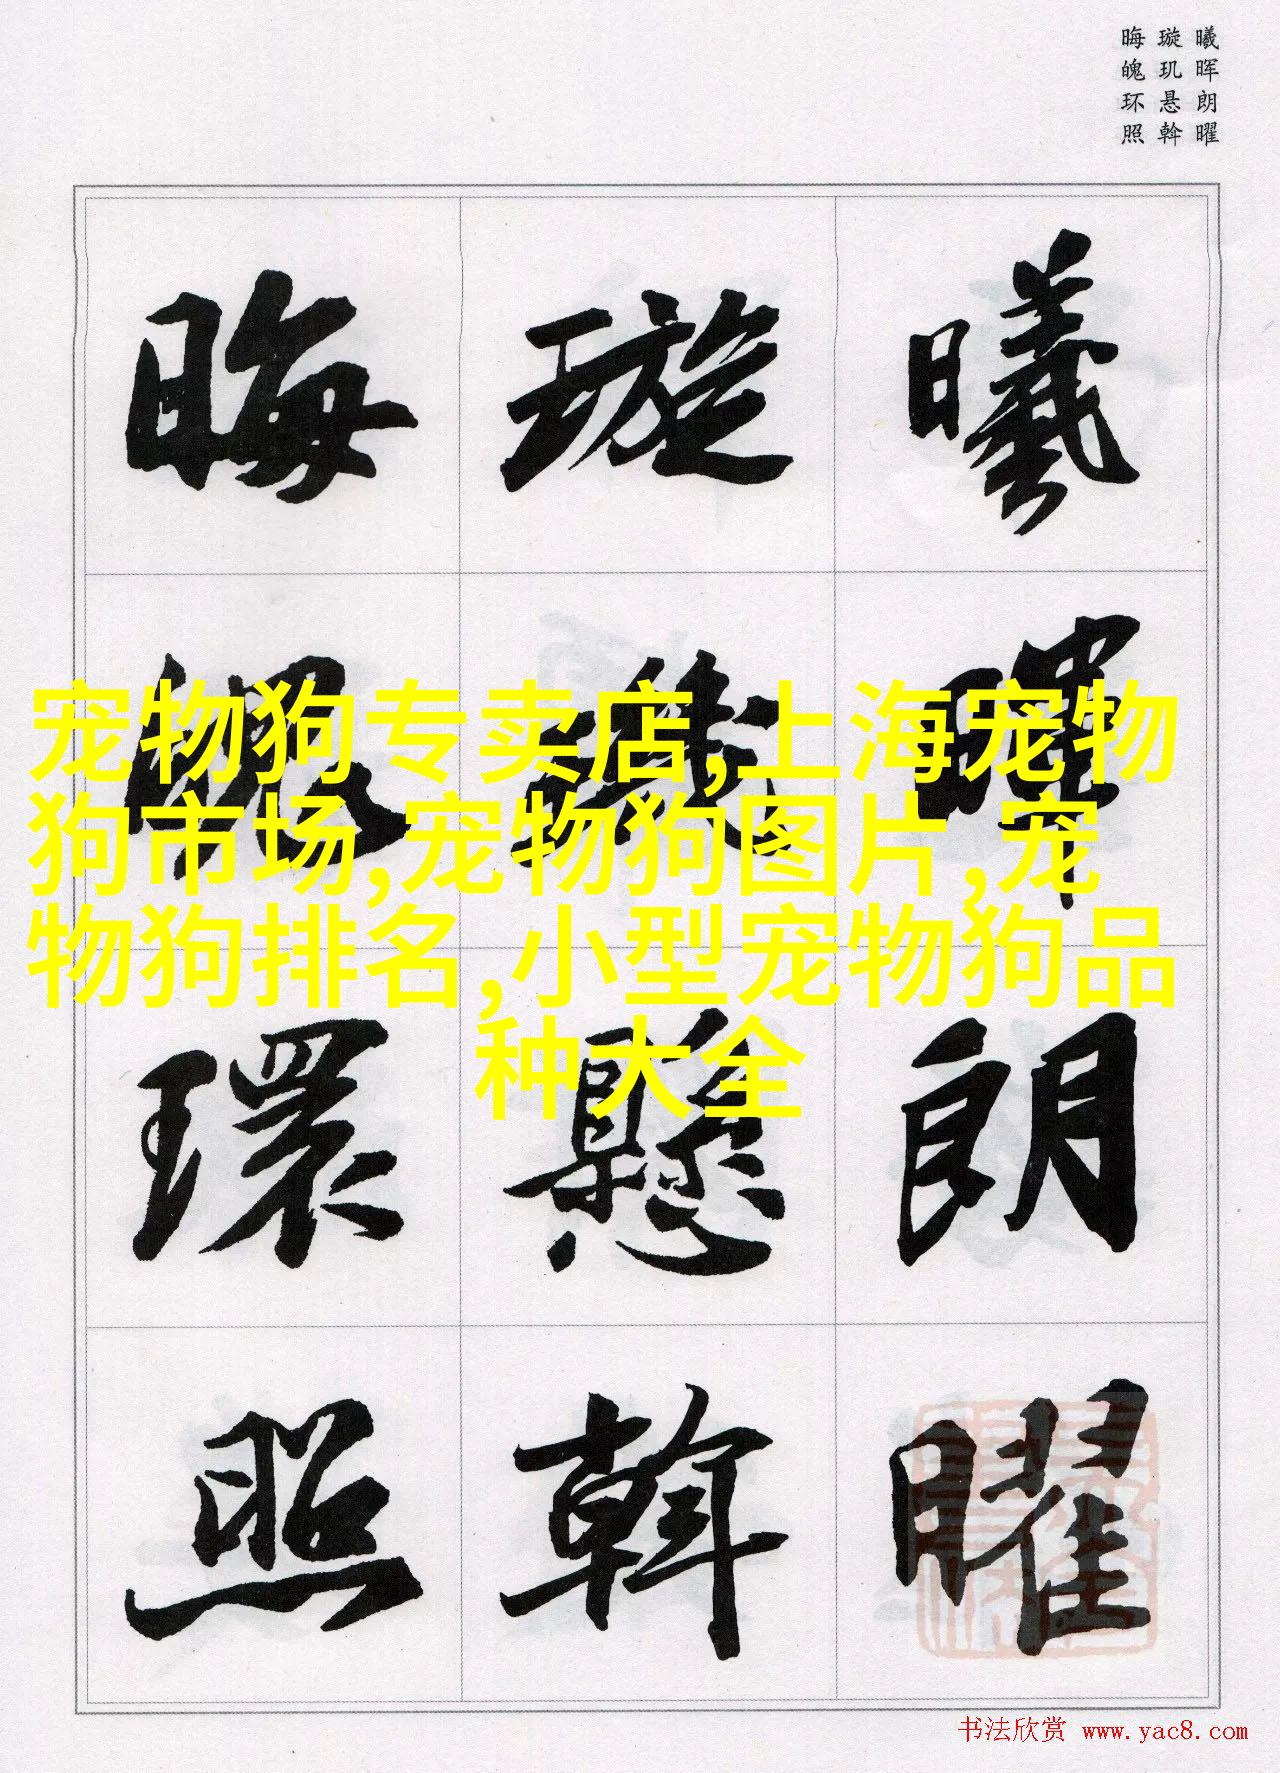 曦晖朗曜
璇玑悬斡
晦魄环照
曦暉朗曜
璇璣懸斡
晦魄環照
宠物狗专卖店,上海宠物
狗市场,宠物狗图片,宠
物狗排名,小型宠物狗品
种大全
书法欣赏 www.yac8.com